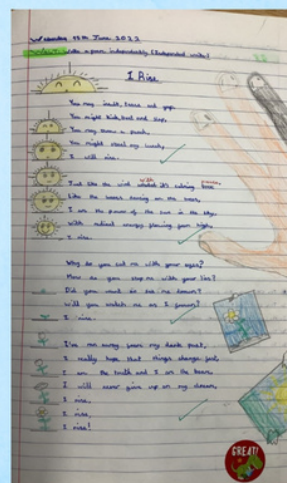 Wednesday 15th June 2022
write a poem independently (Independent write)
I Rise
You may insult, tease and gap,
You might kick, and slap,
You may throw a punch,
You might steal my lunch,
I will rise.
with
Just like the wind it's calming
Like the bears on the
I am the power of the sun in the sky,
With radiant energy flowing from high,
I rise.
Why do you cut me with your eyes?
How do you stop me with your lies?
Did you want to see me
Will you watch me as I
I rise.
I'm run away from my dark past,
I really hope that things change fast,
I am the truth and I am the
I will never give up on my dream,
I rise,
I rise,
I rise!
GREAT!